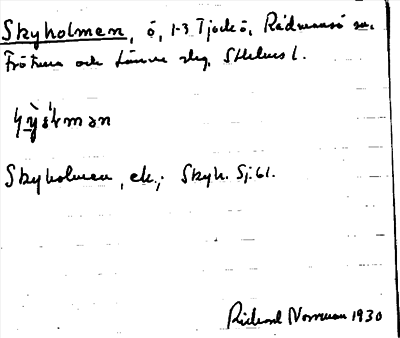 Skyholmen, ö, 1-3 Tjockö, Rådmansö sn.
Frötuna och Länna skg. Sthlms l.
Skyholmen, ek.; Skyh. Sj. 61.
Rickard Norrman 1930